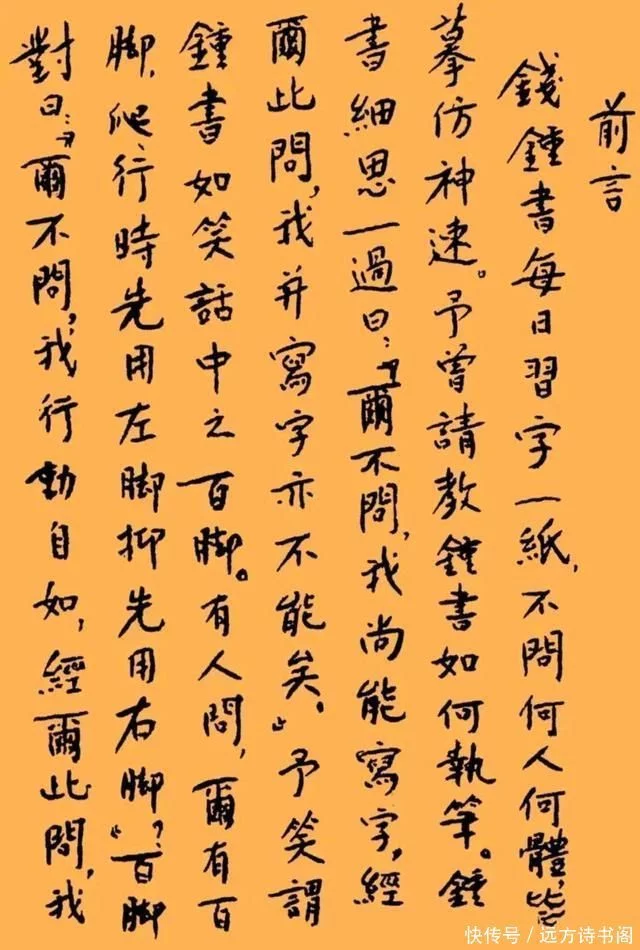 前言
錢鍾書每日習字一紙，不問何人何體，皆
摹仿神速。予曾請教鍾書如何執筆。鍾
書細思一過曰：「爾不問，我尚能寫字，經
爾此問，我并寫字亦不能矣。」予笑謂
鍾書如笑話中之百脚。有人問，爾有百
脚，爬行時先用左脚抑先用右脚？」百脚
對曰：「爾不問，我行動自如，經爾此問，我
快传号／远方诗书阁